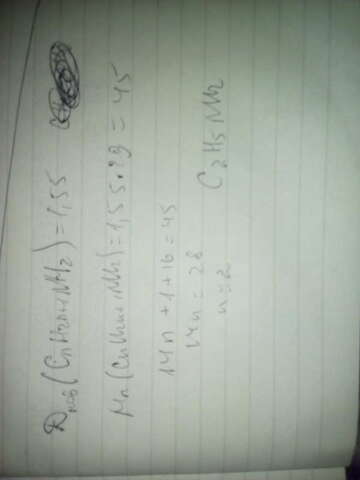 Dпов(CnH2n+1NH2)=1,55
Mr(CnH2n+1NH2)=1,55•29=45
14n+1+16=45
14n=28
n=2
C2H5NH2